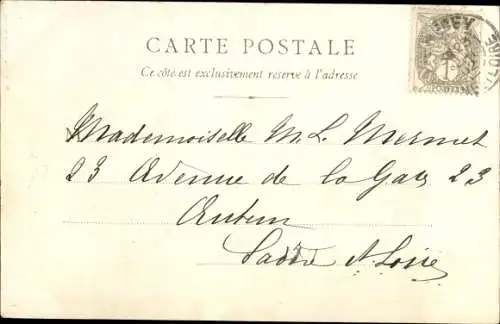 CARTE POSTALE
Ce côté est exclusivement réservé à l'adresse
Mademoiselle M. L. Mermet
23 Avenue de la Gare 23
Autun
Saône & Loire